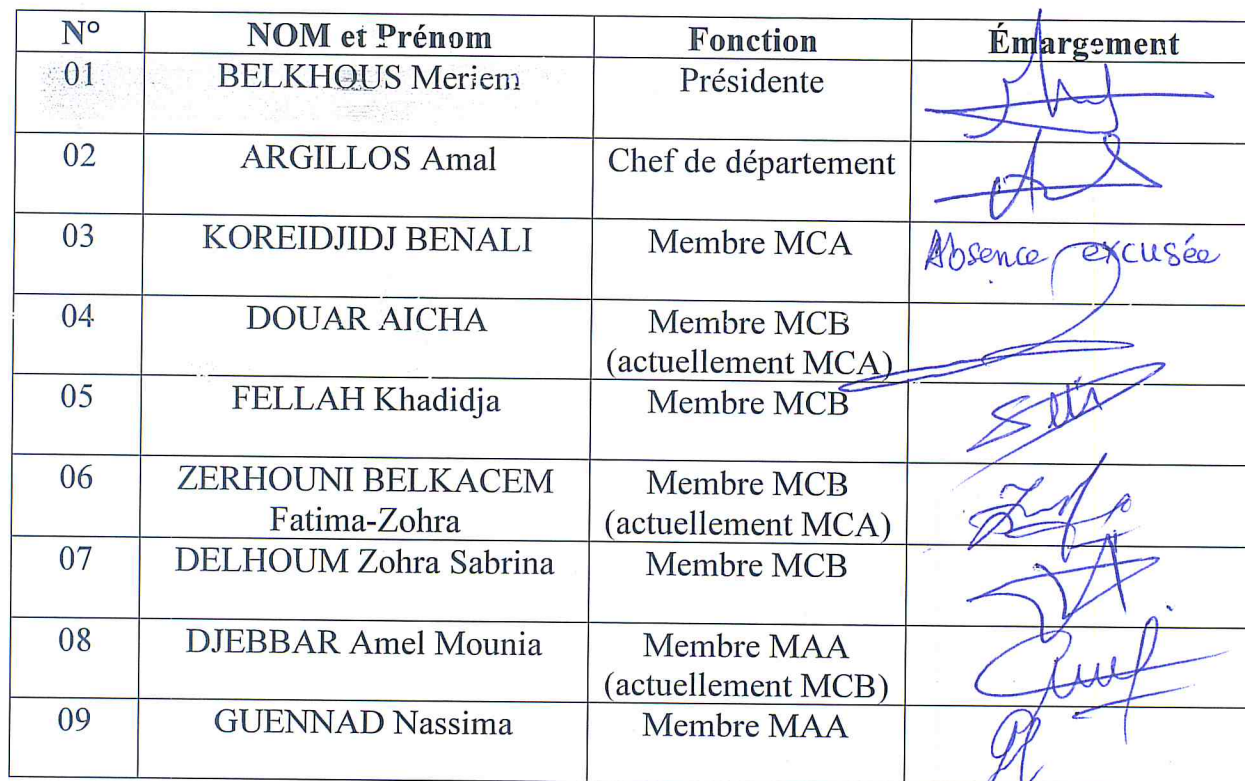 N° NOM et Prénom Fonction Émargement
01 BELKHOUS Meriem Présidente
02 ARGILLOS Amal Chef de département
03 KOREIDJIDJ BENALI Membre MCA Absence excusée
04 DOUAR AICHA Membre MCB
(actuellement MCA)
05 FELLAH Khadidja Membre MCB
06 ZERHOUNI BELKACEM Membre MCB
Fatima-Zohra (actuellement MCA)
07 DELHOUM Zohra Sabrina Membre MCB
08 DJEBBAR Amel Mounia Membre MAA
(actuellement MCB)
09 GUENNAD Nassima Membre MAA